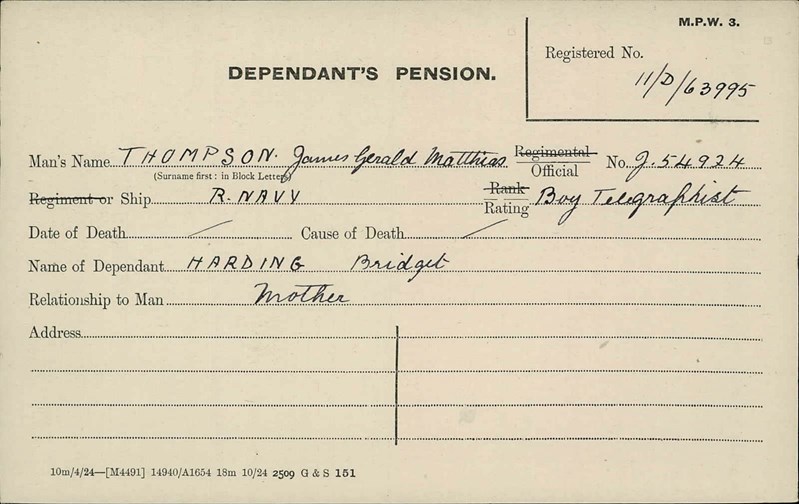 M.P.W. 3.
Registered No.
11/D/63995
DEPENDANT'S PENSION.
Man's Name THOMPSON. James Gerald Matthias Regimental Official No. J. 54924
(Surname first : in Block Letters)
Regiment or Ship R. NAVY Rank Rating Boy Telegraphist
Date of Death / Cause of Death /
Name of Dependant HARDING Bridget
Relationship to Man Mother
Address
10m/4/24—[M4491] 14940/A1654 18m 10/24 2509 G & S 151